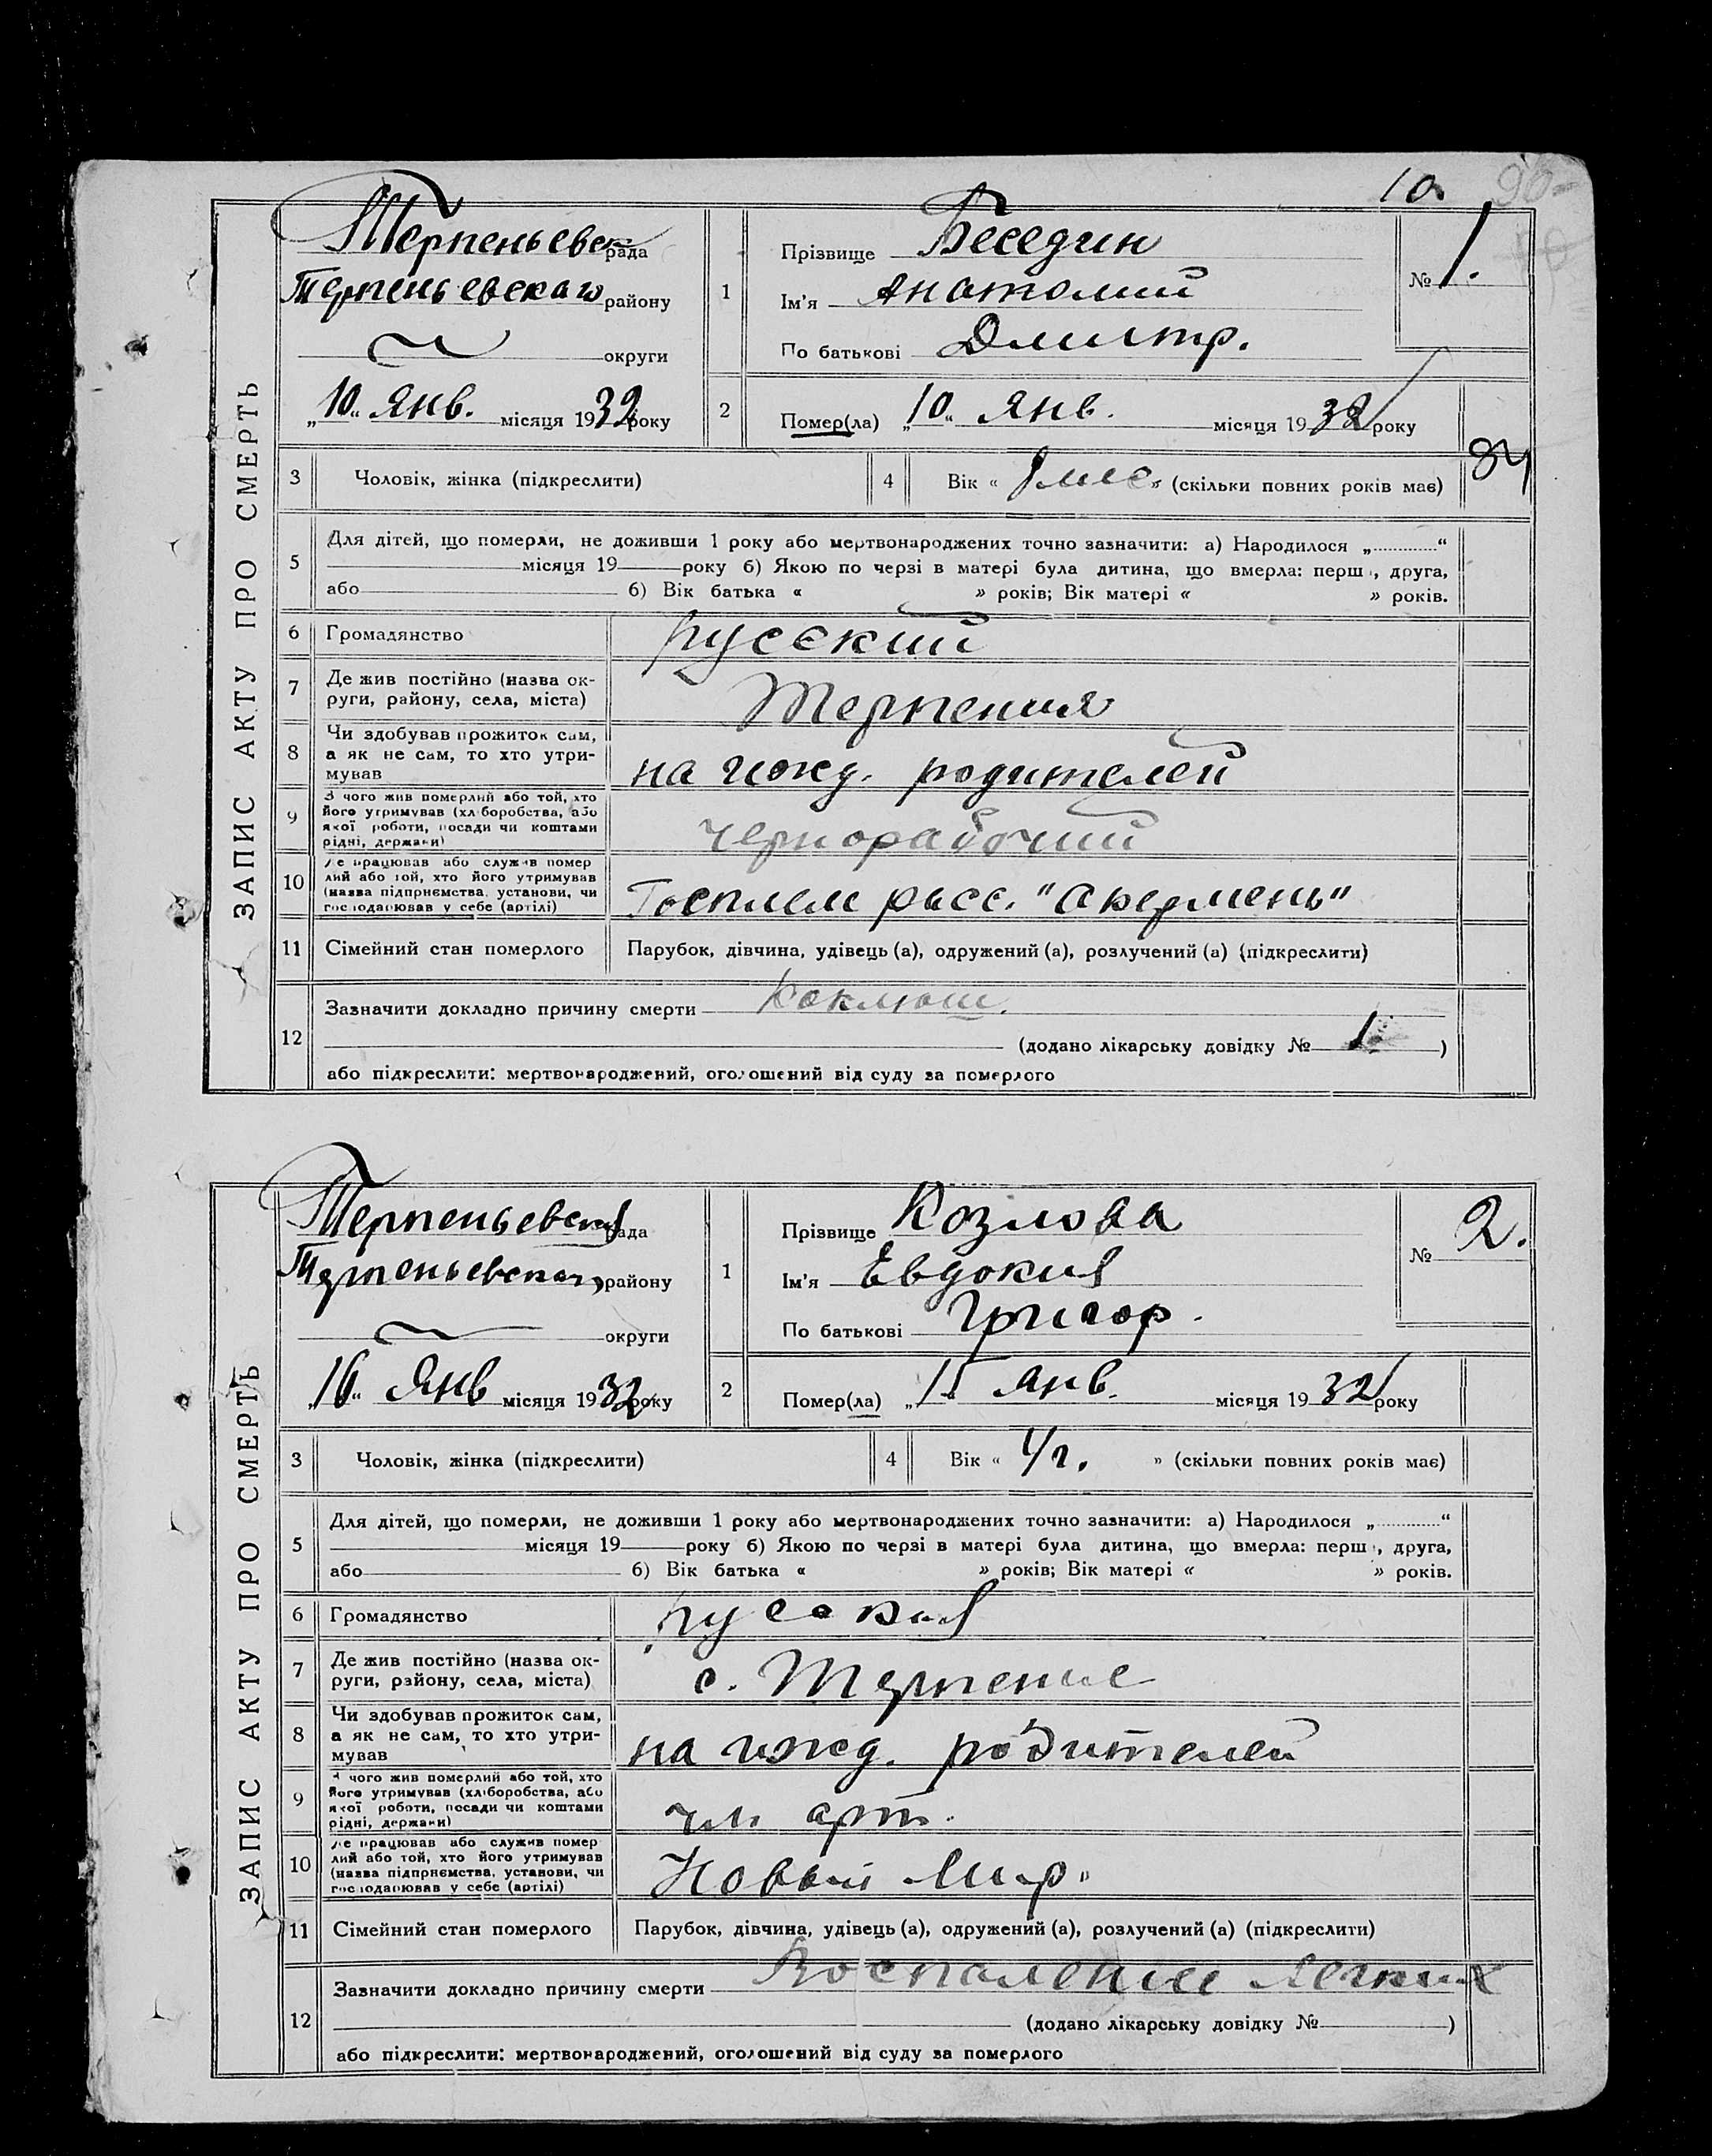 10.
90
ЗАПИС АКТУ ПРО СМЕРТЬ
Терпеньевск рада
Терпеньевскаго району
округи
„10“ Янв. місяця 1932 року
1
Прізвище Беседин
Ім'я Анатолий
По батькові Дмитр.
№ 1.
2
Помер(ла) „10“ Янв. місяця 1932 року
3 Чоловік, жінка (підкреслити)
4 Вік « мес. » (скільки повних років має)
5 Для дітей, що померли, не доживши 1 року або мертвонароджених точно зазначити: а) Народилося „............“
місяця 19 року б) Якою по черзі в матері була дитина, що вмерла: перш , друга,
або б) Вік батька « » років; Вік матері « » років.
6 Громадянство русский
7 Де жив постійно (назва ок-
руги, району, села, міста) Терпения
8 Чи здобував прожиток сам,
а як не сам, то хто утри-
мував на ижд. родителей
9 З чого жив померлий або той, хто
його утримував (хліборобства, або
якої роботи, посади чи коштами
рідні, держави) чернорабочий
10 Де працював або служив помер
лий або той, хто його утримував
(назва підприємства, установи, чи
господарював у себе (артілі) Госплем расс. "Акермень"
11 Сімейний стан померлого Парубок, дівчина, удівець (а), одружений (а), розлучений (а) (підкреслити)
12 Зазначити докладно причину смерти Коклюш.
(додано лікарську довідку № 1 )
або підкреслити: мертвонароджений, оголошений від суду за померлого
ЗАПИС АКТУ ПРО СМЕРТЬ
Терпеньевская рада
Терпеньевскаго району
округи
„16“ Янв місяця 1932 року
1
Прізвище Козлова
Ім'я Евдокия
По батькові Григор.
№ 2.
2
Помер(ла) „15“ Янв. місяця 1932 року
3 Чоловік, жінка (підкреслити)
4 Вік « г. » (скільки повних років має)
5 Для дітей, що померли, не доживши 1 року або мертвонароджених точно зазначити: а) Народилося „............“
місяця 19 року б) Якою по черзі в матері була дитина, що вмерла: перш , друга,
або б) Вік батька « » років; Вік матері « » років.
6 Громадянство русская
7 Де жив постійно (назва ок-
руги, району, села, міста) с. Терпение
8 Чи здобував прожиток сам,
а як не сам, то хто утри-
мував на ижд. родителей
9 З чого жив померлий або той, хто
його утримував (хліборобства, або
якої роботи, посади чи коштами
рідні, держави) чл. арт.
10 Де працював або служив помер
лий або той, хто його утримував
(назва підприємства, установи, чи
господарював у себе (артілі) Новый Мир"
11 Сімейний стан померлого Парубок, дівчина, удівець (а), одружений (а), розлучений (а) (підкреслити)
12 Зазначити докладно причину смерти Воспаление легких
(додано лікарську довідку № )
або підкреслити: мертвонароджений, оголошений від суду за померлого